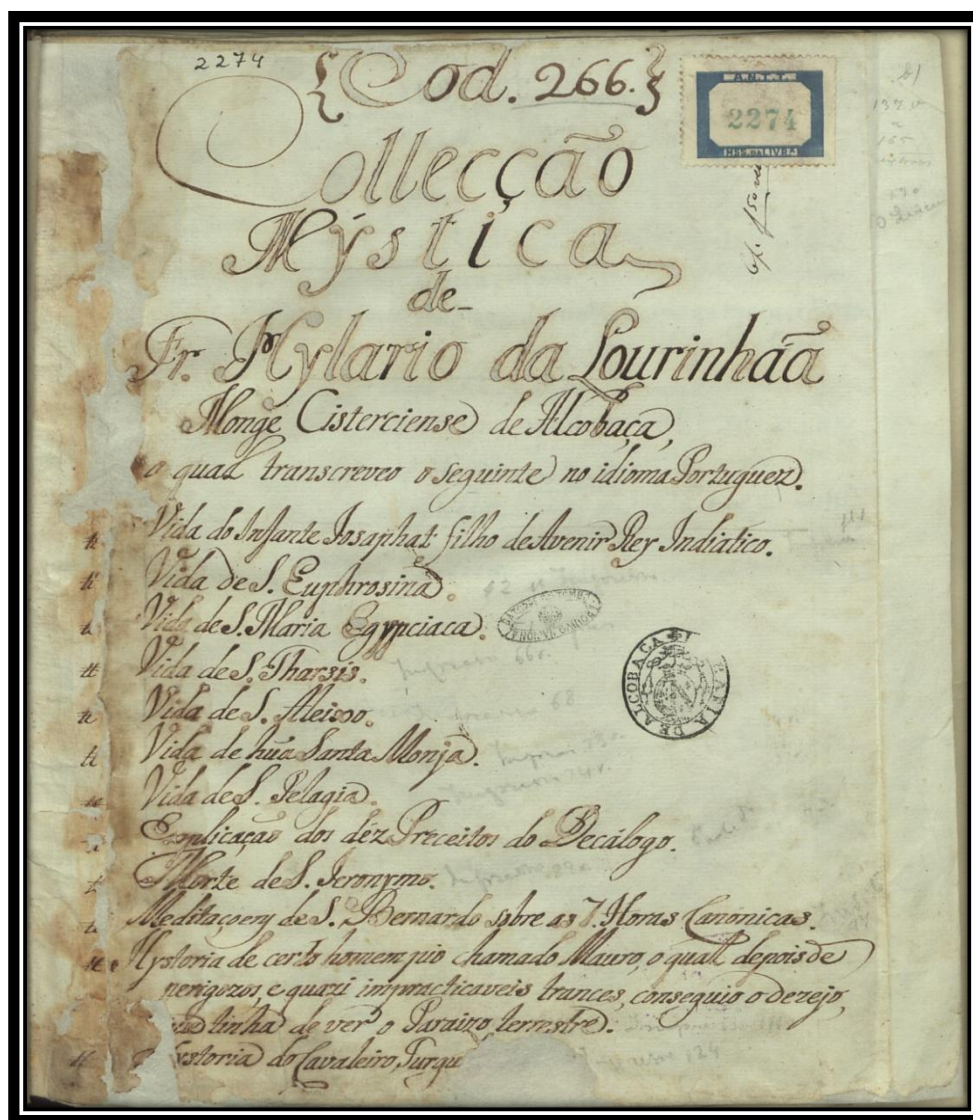 2274
{Cod. 266.}
A.N.T.T.
2274
MSS. DA LIVR.
Collecção
Mýstica
de
Fr. Hylario da Lourinhãa
Monge Cisterciense de Alcobaça,
o qual transcreveo o seguinte no idioma Portuguez.
Vida do Infante Iosaphat filho de Avenir Rey Indiatico.
Vida de S. Euphrosina.
Vida de S. Maria Egypciaca.
Vida de S. Tharsis.
Vida de S. Aleixo.
Vida de hũa Santa Monja.
Vida de S. Pelagia.
Explicação dos déz Preceitos do Decálogo.
Morte de S. Ieronymo.
Meditaçoens de S. Bernardo sobre as 7. Horas Canónicas.
Hystoria de certo homem pio chamado Mauro, o qual depois de
perigozos, e quazi impracticaveis trances, conseguio o dezejo,
que tinha de ver o Paraizo terrestre.
Hystoria do Cavaleiro Turgu
DE ALCOBAÇA